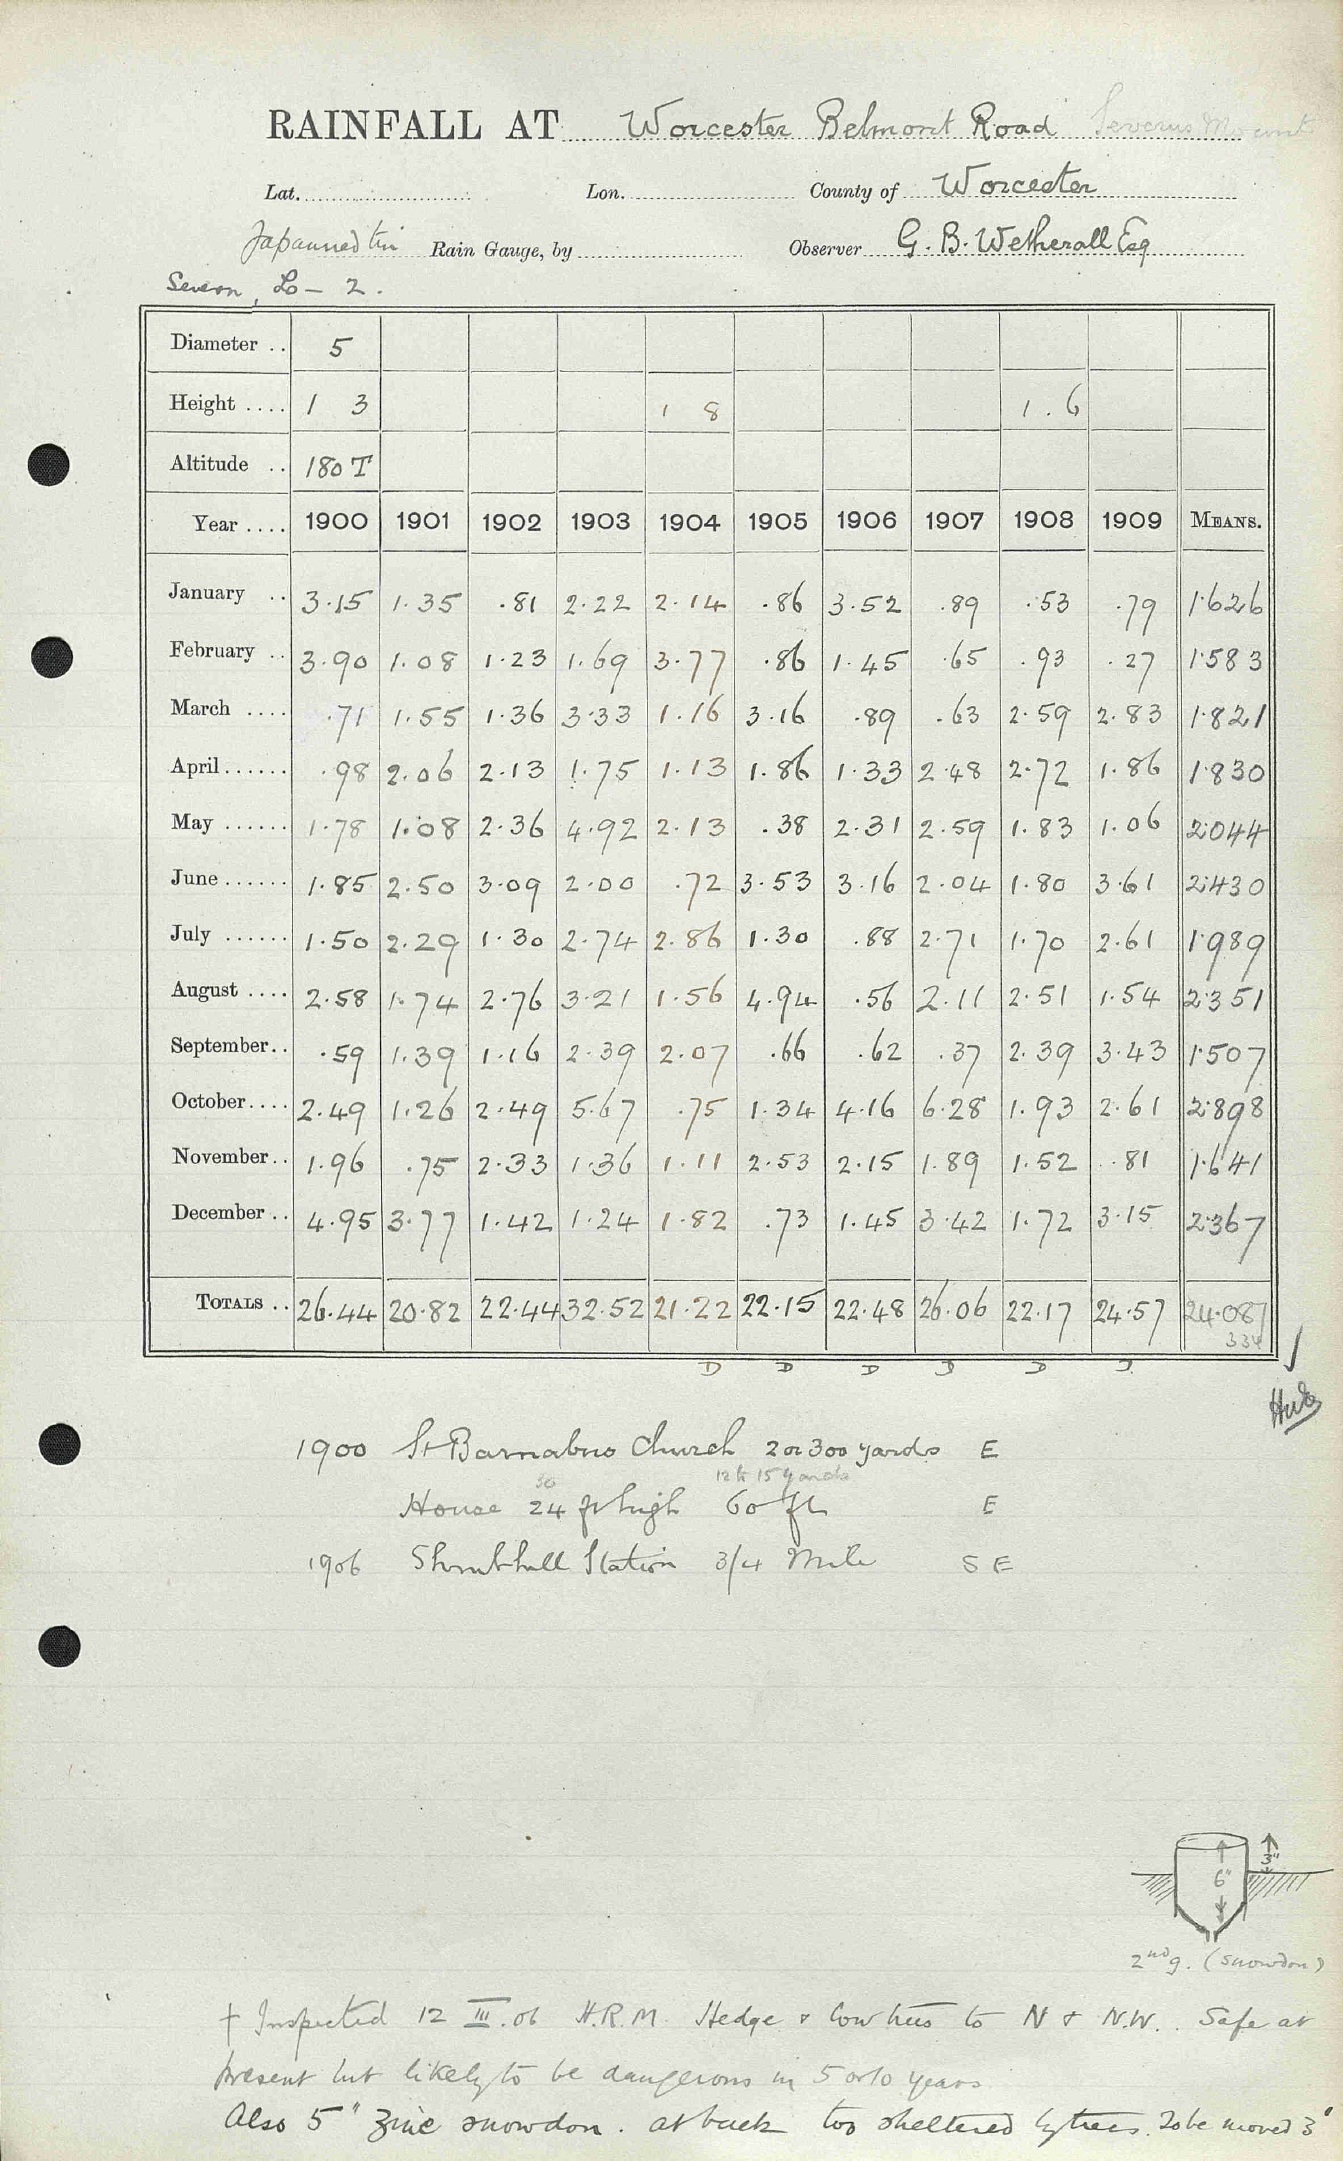 RAINFALL AT Worcester Belmont Road Severus Mount
Lat. Lon. County of Worcester
Japanned tin Rain Gauge, by Observer G. B. Wetherall Esq
Severn, Lo - 2.
Diameter .. 5
Height .... 1 3 1 8 1.6
Altitude .. 180 T
Year .... 1900 1901 1902 1903 1904 1905 1906 1907 1908 1909 MEANS.
January .. 3.15 1.35 .81 2.22 2.14 .86 3.52 .89 .53 .79 1.626
February .. 3.90 1.08 1.23 1.69 3.77 .86 1.45 .65 .93 .27 1.583
March .... .71 1.55 1.36 3.33 1.16 3.16 .89 .63 2.59 2.83 1.821
April...... .98 2.06 2.13 1.75 1.13 1.86 1.33 2.48 2.72 1.86 1.830
May ...... 1.78 1.08 2.36 4.92 2.13 .38 2.31 2.59 1.83 1.06 2.044
June...... 1.85 2.50 3.09 2.00 .72 3.53 3.16 2.04 1.80 3.61 2.430
July ...... 1.50 2.29 1.30 2.74 2.86 1.30 .88 2.71 1.70 2.61 1.989
August .... 2.58 1.74 2.76 3.21 1.56 4.94 .56 2.11 2.51 1.54 2.351
September.. .59 1.39 1.16 2.39 2.07 .66 .62 .37 2.39 3.43 1.507
October.... 2.49 1.26 2.49 5.67 .75 1.34 4.16 6.28 1.93 2.61 2.898
November.. 1.96 .75 2.33 1.36 1.11 2.53 2.15 1.89 1.52 .81 1.641
December .. 4.95 3.77 1.42 1.24 1.82 .73 1.45 3.42 1.72 3.15 2.367
TOTALS .. 26.44 20.82 22.44 32.52 21.22 22.15 22.48 26.06 22.17 24.57 24.087
334
D D D D D D
1900 St Barnabas Church 2 or 300 yards E
30 12 to 15 yards
House 24 ft high 60 ft E
1906 Shrubhill Station 3/4 Mile S E
3"
6"
2nd g. (Snowdon)
† Inspected 12 III.06 H.R.M. Hedge & low trees to N & N.W. Safe at
present but likely to be dangerous in 5 or 10 years
Also 5" Zinc snowdon. at back too sheltered by trees. To be moved 3'